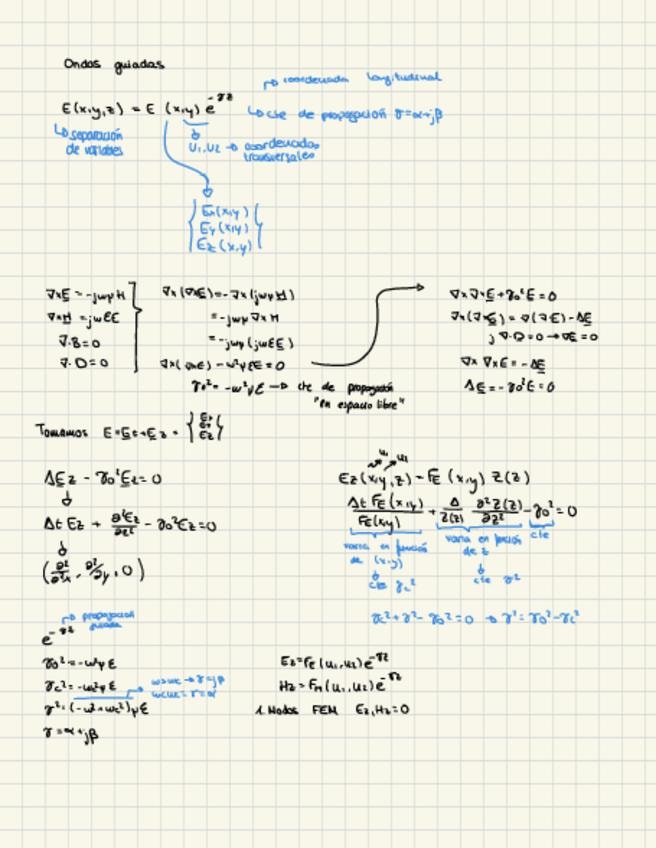 Ondas guiadas
↳ coordenada longitudinal
E(x,y,z) = E (x,y) e^-γz
↳ cte de propagación γ=α+jβ
↳ separación
de variables
U1,U2 → coordenadas
transversales
{ Ex(x,y)
Ey(x,y)
Ez(x,y) }
∇×E = -jωμH
∇×H = jωεE
∇·B=0
∇·D=0
∇×(∇×E)=-∇×(jωμH)
= -jωμ∇×H
= -jωμ(jωεE)
∇×(∇×E) - ω²μεE=0
γ0² = -ω²με → cte de propagación
"en espacio libre"
∇×∇×E+γ0²E=0
∇×(∇×E) = ∇(∇·E) - ΔE
j ∇·D=0 → ∇E=0
∇×∇×E = -ΔE
ΔE = -γ0²E=0
Tomamos E=Et+Ez =
ΔEz - γ0²Ez=0
↓
Δt Ez + ∂²Ez/∂z² - γ0²Ez=0
↓
(∂²/∂²x, ∂²/∂y, 0)
u1 u2
Ez(x,y,z) = FE (x,y) Z(z)
Δt FE(x,y)/FE(x,y) + Δ/Z(z) ∂²Z(z)/∂z² - γ0² = 0
varia en función
de (x,y)
↓
cte γc²
varia en función
de z
↓
cte γ²
cte
γc²+γ²-γ0²=0 → γ²=γ0²-γc²
↳ propagación
guiada
e^-γz
γ0²=-ω²με
γc²=-ωc²με
ω>ωc → γ=jβ
ω<ωc = γ=α
γ²=(-ω²+ωc²)με
γ=α+jβ
Ez=FE(u1,u2)e^-γz
Hz=FH(u1,u2)e^-γz
1. Modos TEM Ez,Hz=0